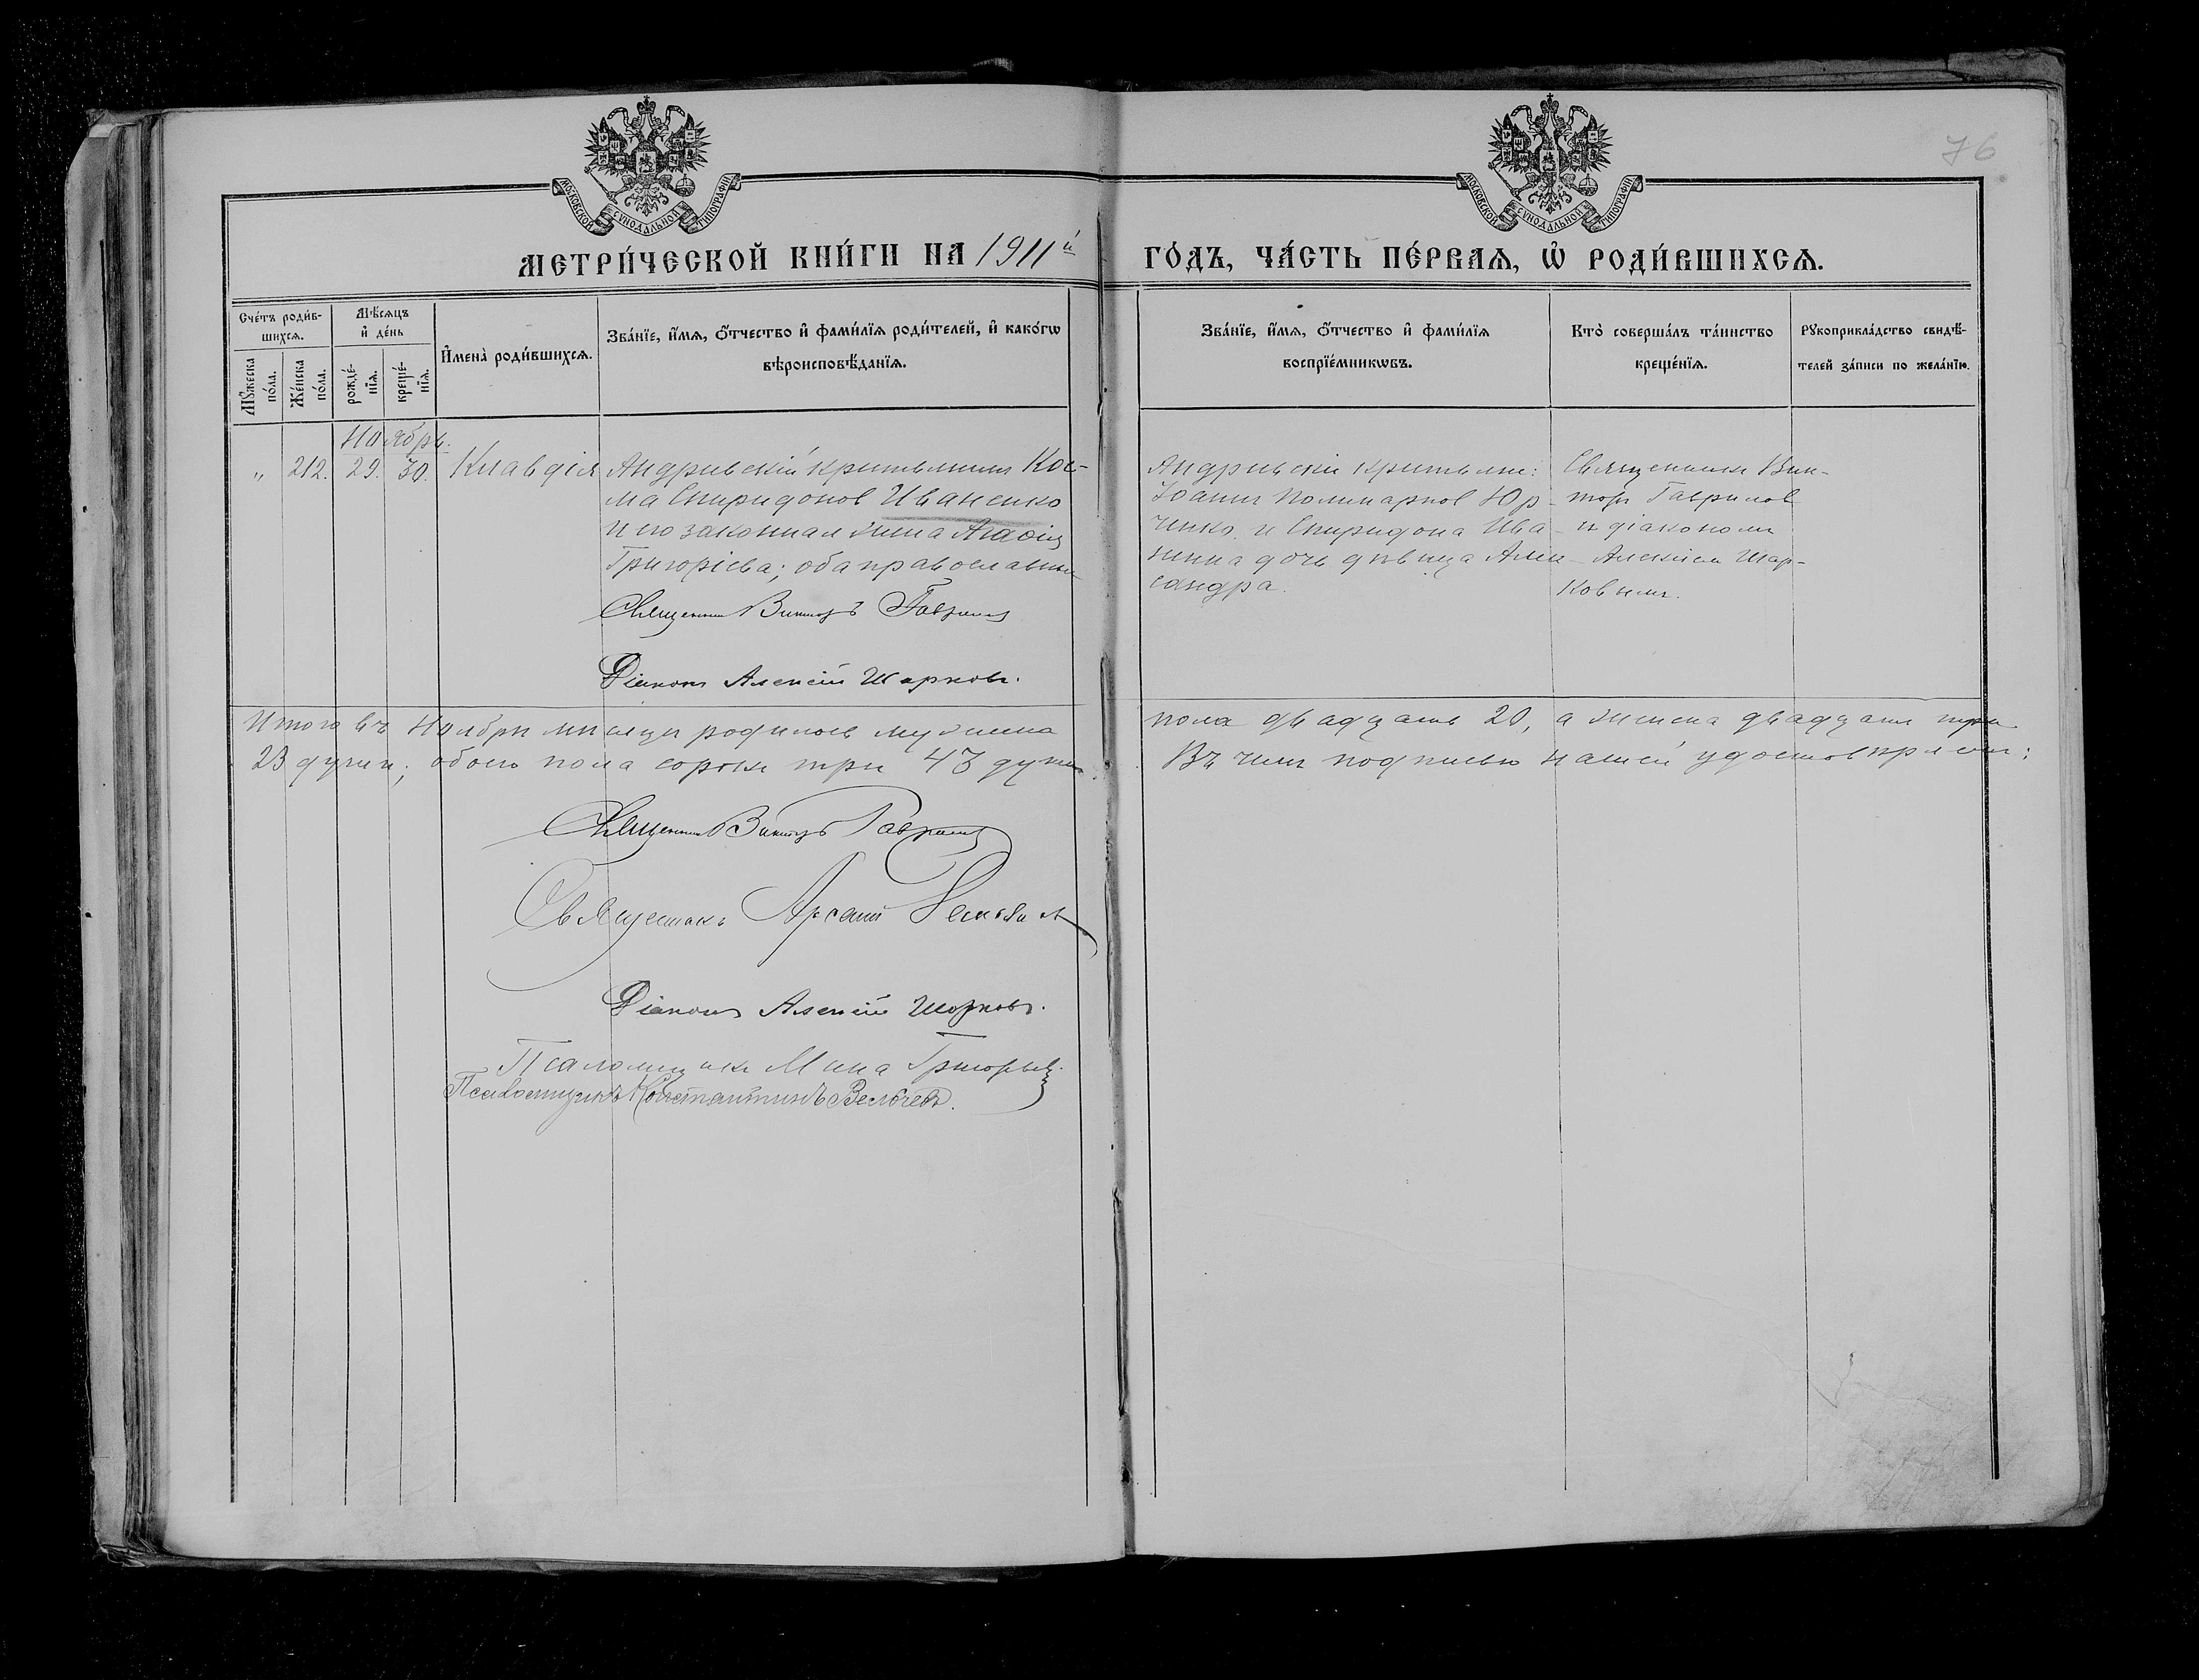 МОСКОВСКОЙ СѴНОДАЛЬНОЙ ТИПОГРАФІИ
МОСКОВСКОЙ СѴНОДАЛЬНОЙ ТИПОГРАФІИ
76
МЕТРИ́ЧЕСКОЙ КНИ́ГИ НА 1911й
ГО́ДЪ, ЧА́СТЬ ПЕ́РВАЯ, Ѡ҆ РОДИ́ВШИХСЯ.
Сче́тъ роди́в-
шихся.
Мꙋ́жеска по́ла.
Же́нска по́ла.
Мѣ́сяцъ
и҆ де́нь
рожде́-нїя.
креще́-нїя.
И҆мена̀ роди́вшихся.
Зва́нїе, и҆́мя, ѻ҆́тчество и҆ фами́лїя роди́телей, и҆ како́гѡ
вѣроисповѣ́данїя.
Зва́нїе, и҆́мя, ѻ҆́тчество и҆ фами́лїя
воспрїе́мникѡвъ.
Кто̀ соверша́лъ та́инство
креще́нїя.
Рꙋкоприкла́дство свидѣ́-
телей за́писи по жела́нїю.
Ноябрь.
„ 212. 29. 30. Клавдія
Андреевскій крестьянинъ Кос-
ма Спиридоновъ Иваненко
и его законная жена Агафія
Григоріева; оба православные
Священникъ Викторъ Гавриловъ
Діаконъ Алексій Шарковъ.
Андреевскіе крестьяне:
Іоаннъ Поликарповъ Юр-
ченко и Спиридона Ива-
ненка дочь дѣвица Алек-
сандра.
Священникъ Вик-
торъ Гавриловъ
съ діакономъ
Алексіемъ Шар-
ковымъ.
Итого въ Ноябрѣ мѣсяцѣ родилось мужеска
пола двадцать 20, а женска двадцать три
23 души; обоего пола сорокъ три 43 души
Въ чемъ подписью нашей удостовѣряемъ:
Священникъ Викторъ Гавриловъ
Священникъ Арсеній
Діаконъ Алексій Шарковъ.
Псаломщикъ Мина Григорьевъ
Псаломщикъ Константинъ